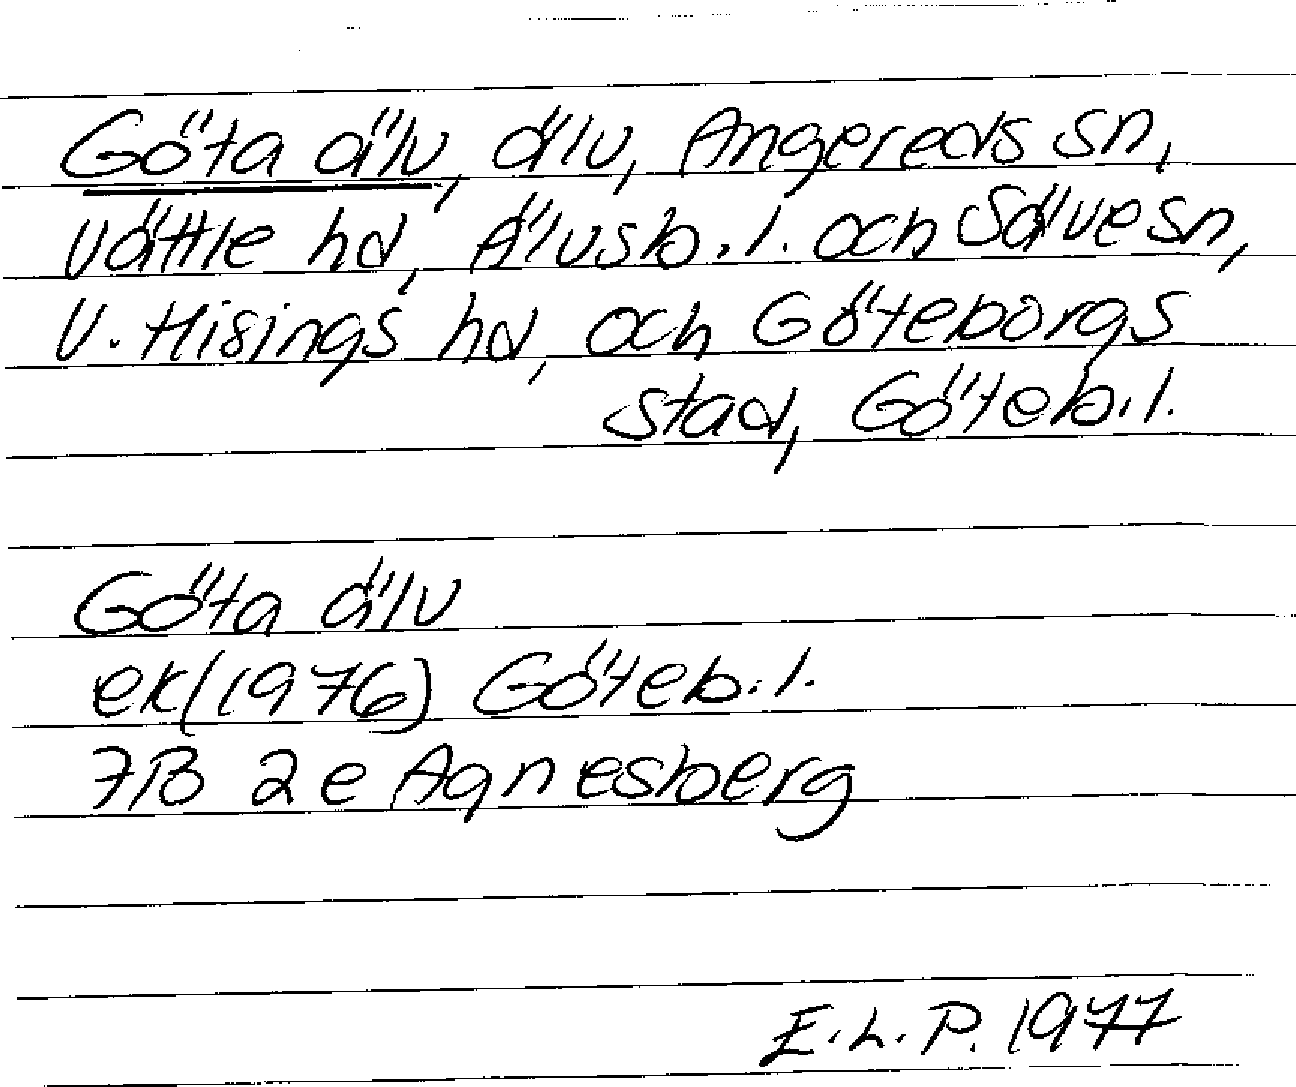 Göta älv, älv, Angereds sn,
Vättle hd, Älvsb.l. och Säve sn,
V. Hisings hd, och Göteborgs
stad, Göteb.l.
Göta älv
ek(1976) Göteb.l.
7B 2e Agnesberg
E.L.P. 1977